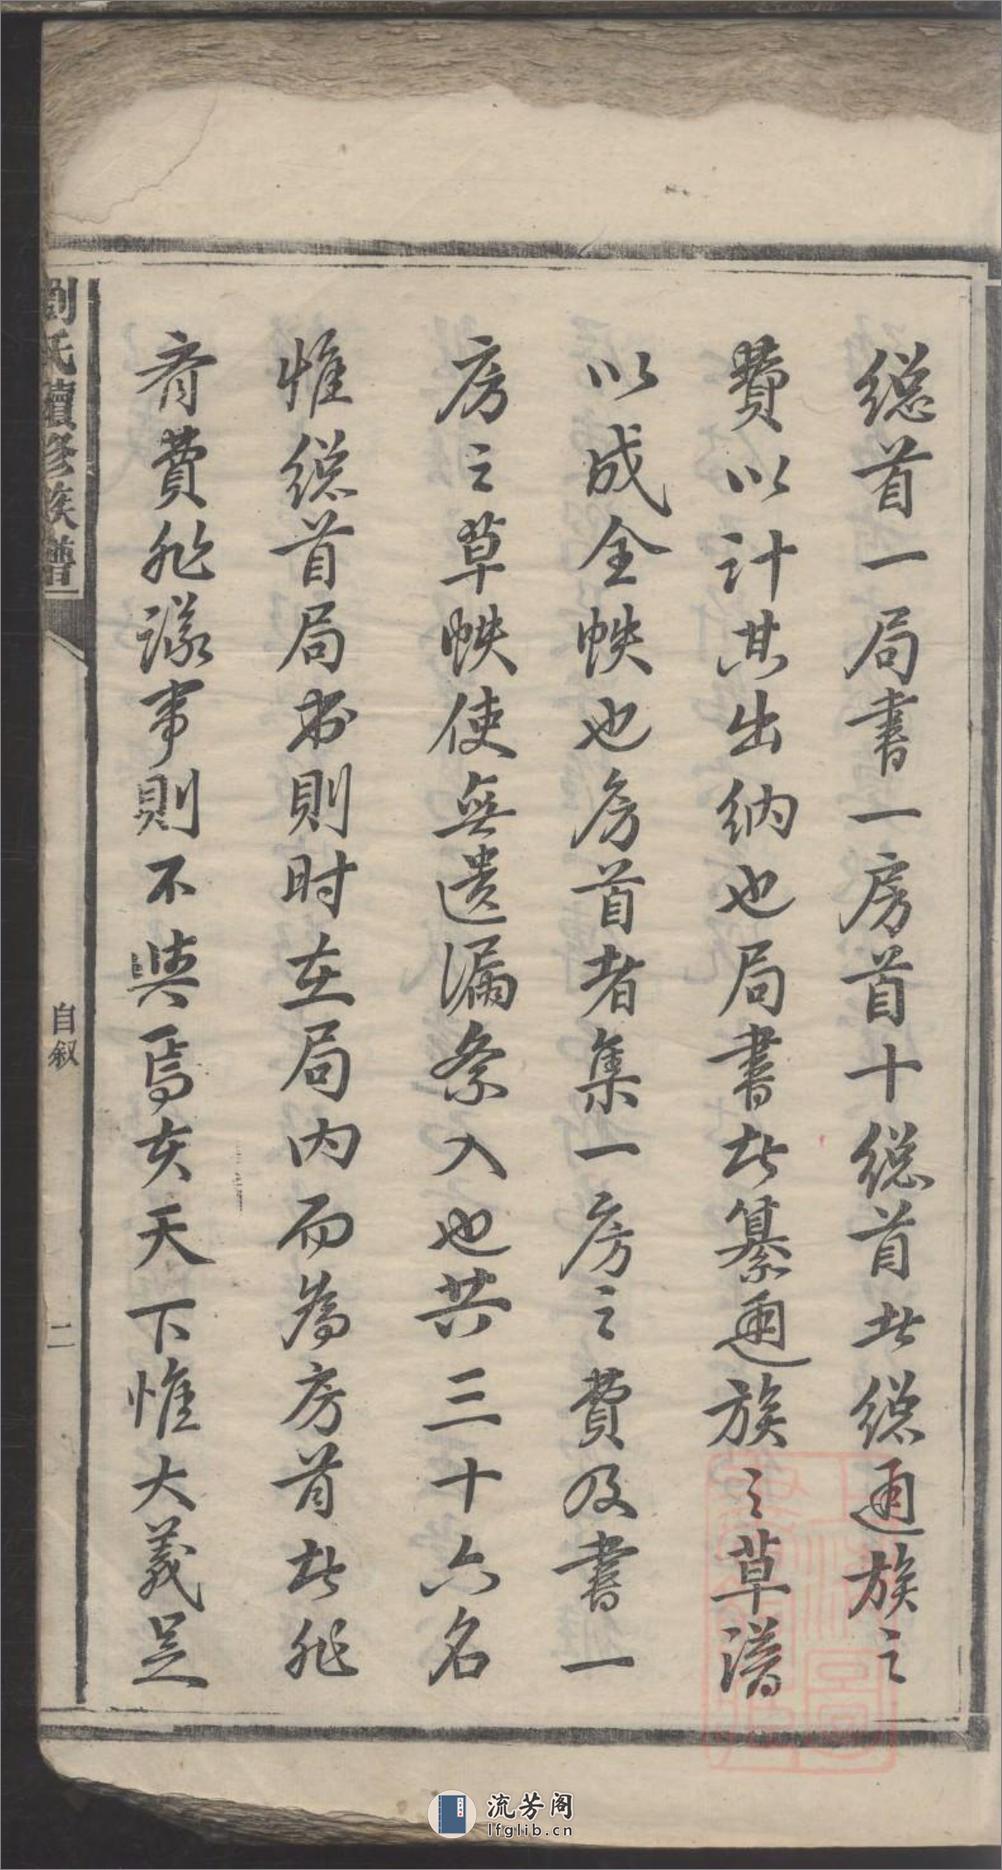 總首一局書一房首十總首者總通族之
費以計其出納也局書者纂通族之草譜
以成全帙也房首者集一房之費及書一
房之草帙使無遺漏紊入也共三十六名
惟總首局書則时在局內而為房首者非
有費非議事則不與焉夫天下惟大義足
劉氏續修族譜
自叙
二
流芳阁
lfglib.cn